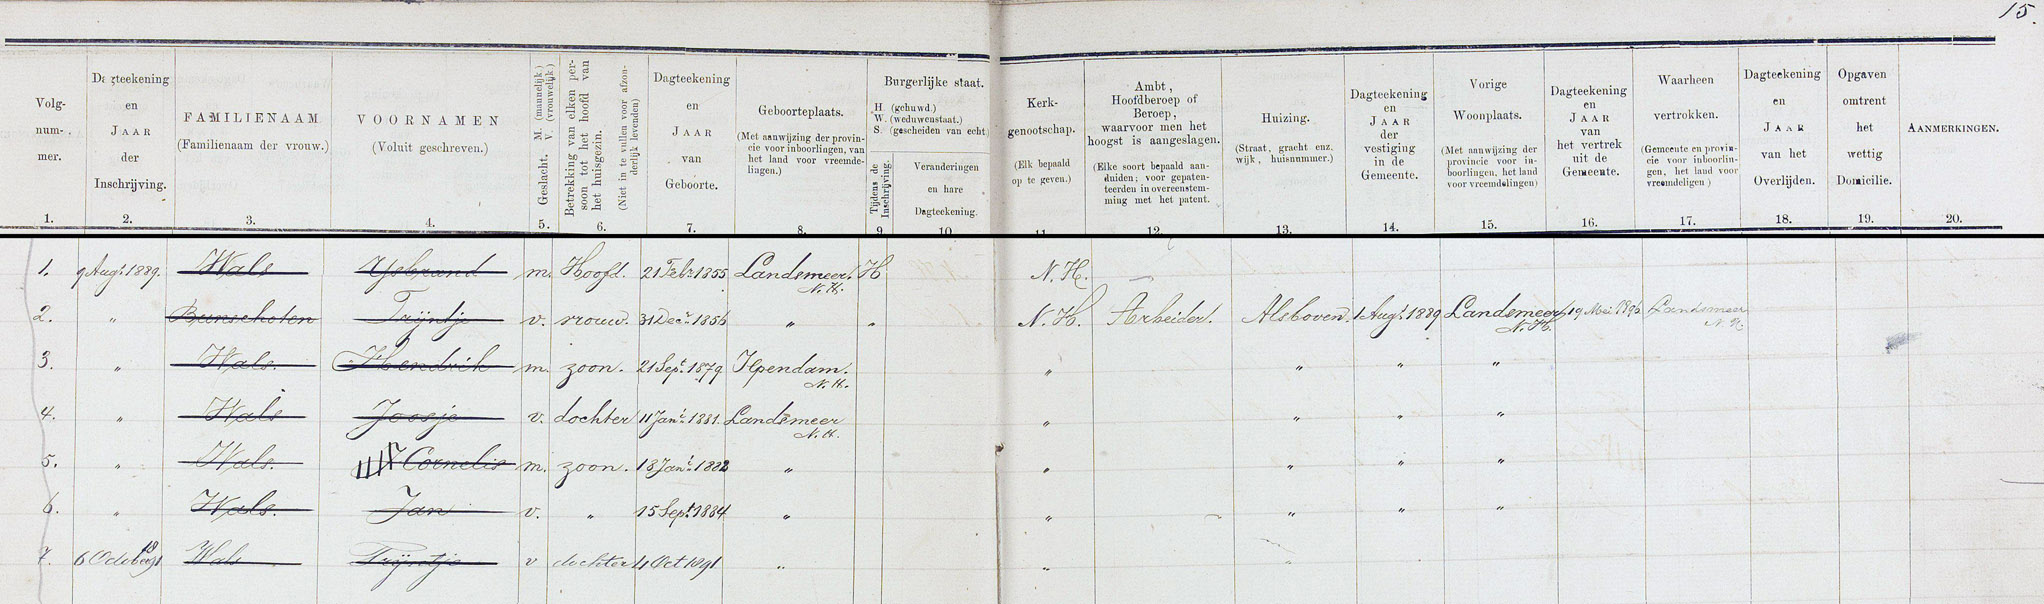 15.
Volg-
num-
mer.
1.
Dagteekening
en
JAAR
der
Inschrijving.
2.
FAMILIENAAM
(Familienaam der vrouw.)
3.
VOORNAMEN
(Voluit geschreven.)
4.
Geslacht. M. (mannelijk.)
V. (vrouwelijk)
5.
Betrekking van elken per-
soon tot het hoofd van
het huisgezin.
(Niet in te vullen voor afzon-
derlijk levenden)
6.
Dagteekening
en
JAAR
van
Geboorte.
7.
Geboorteplaats.
(Met aanwijzing der provin-
cie voor inboorlingen, van
het land voor vreemde-
lingen.)
8.
Burgerlijke staat.
H. (gehuwd.)
W. (weduwenstaat.)
S. (gescheiden van echt)
Tijdens de
Inschrijving.
9
Veranderingen
en hare
Dagteekening.
10
Kerk-
genootschap.
(Elk bepaald
op te geven.)
11
Ambt,
Hoofdberoep of
Beroep,
waarvoor men het
hoogst is aangeslagen.
(Elke soort bepaald aan-
duiden; voor gepaten-
teerden in overeenstem-
ming met het patent.
12.
Huizing.
(Straat, gracht enz.
wijk, huisnummer.)
13.
Dagteekening
en
JAAR
der
vestiging
in de
Gemeente.
14.
Vorige
Woonplaats.
(Met aanwijzing der
provincie voor in-
boorlingen, het land
voor vreemdelingen)
15.
Dagteekening
en
JAAR
van
het vertrek
uit de
Gemeente.
16.
Waarheen
vertrokken.
(Gemeente en provin-
cie voor inboorlin-
gen, het land voor
vreemdeligen)
17.
Dagteekening
en
JAAR
van het
Overlijden.
18.
Opgaven
omtrent
het
wettig
Domicilie.
19.
AANMERKINGEN.
20.
1. 9 Augt. 1889. Wals Ysbrand m. Hoofd. 21 Febr. 1855 Landsmeer. N.H. H N.H.
2. " Bunschoten Trijntje v. vrouw. 31 Decr. 1856 " " N.H. Arbeider. Alsboven. 1 Augt. 1889 Landsmeer N.H. 19 Mei 1896 Landsmeer N.H.
3. " Wals. Hendrik m. zoon. 21 Sept. 1879 Ilpendam. N.H. " " " "
4. " Wals Joosje v. dochter 11 Jani. 1881. Landsmeer N.H. " " " "
5. " Wals. Cornelis m. zoon. 18 Jani. 1882 " " " " "
6. " Wals. Jan v. " 15 Sept. 1884 " " " " "
7. 6 October 1891 Wals Trijntje v dochter 4 Oct 1891 " " "